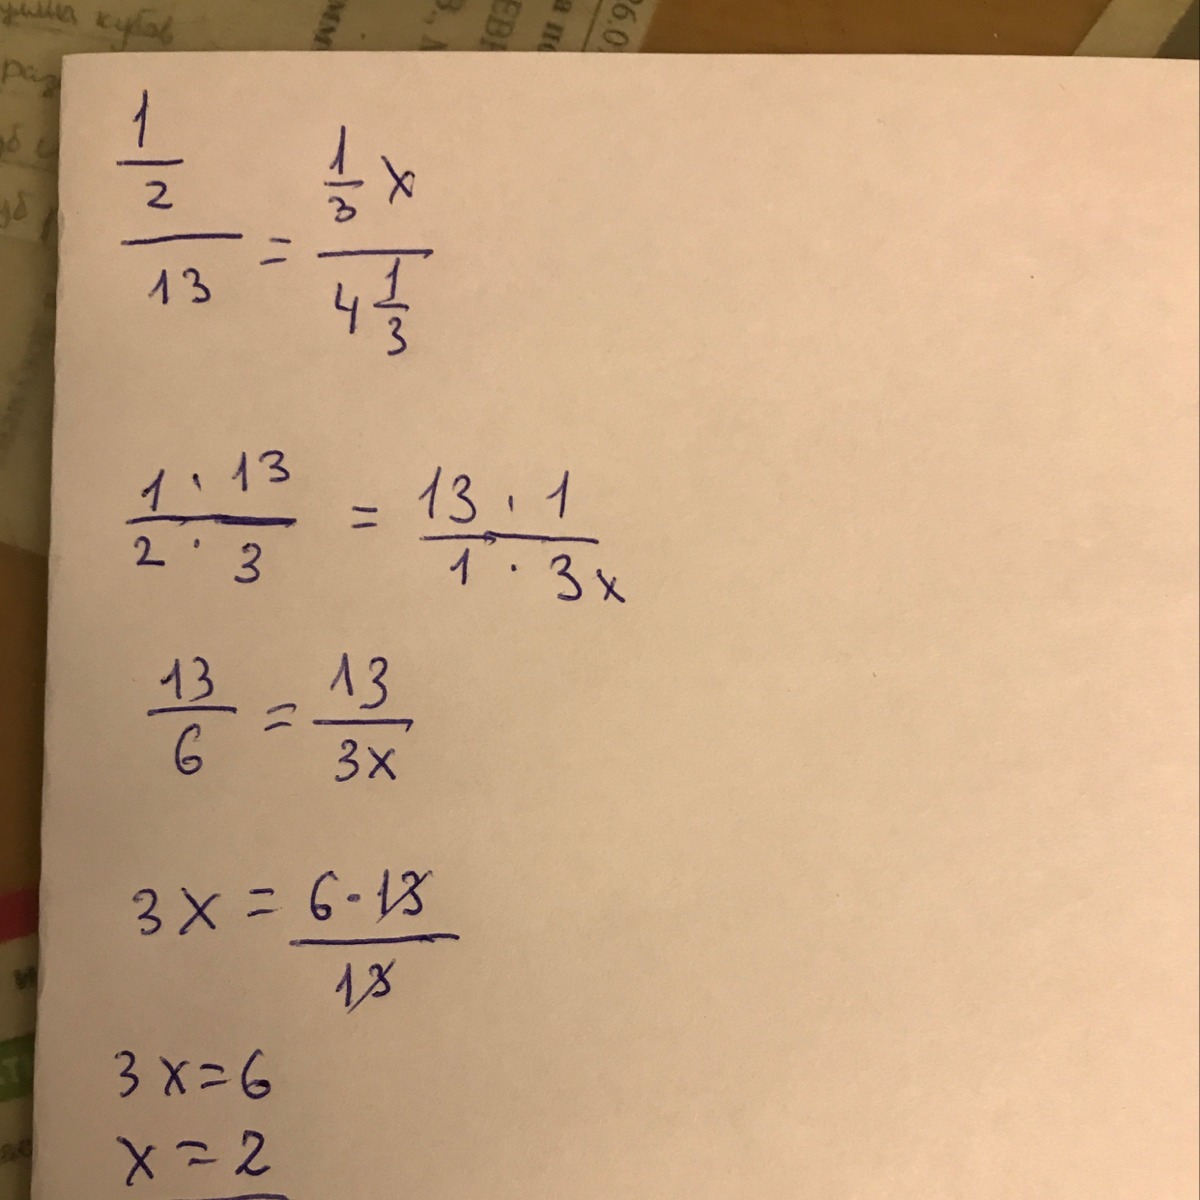 умма кубов
1/2 / 13 = 1/3 x / 4 1/3
1 · 13 / 2 · 3 = 13 · 1 / 1 · 3x
13 / 6 = 13 / 3x
3x = 6 · 13 / 13
3x = 6
x = 2